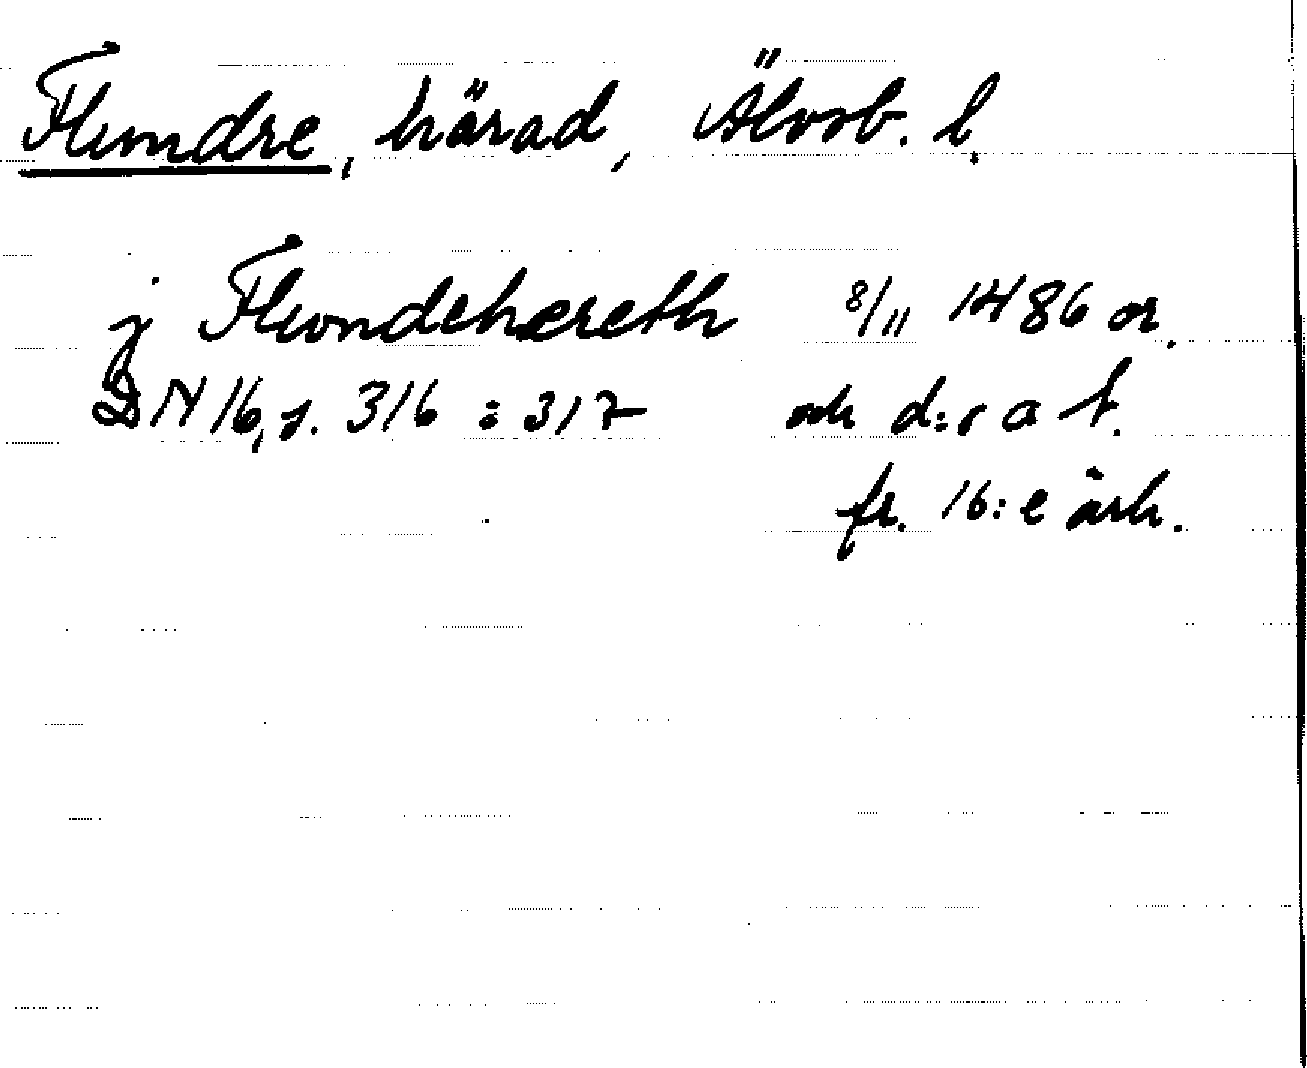 Flundre, härad, Älvsb. l.
j Flwndehæreth 8/11 1486 or.
DN 16, s. 316 : 317 och d:o a t.
fr. 16:e årh.